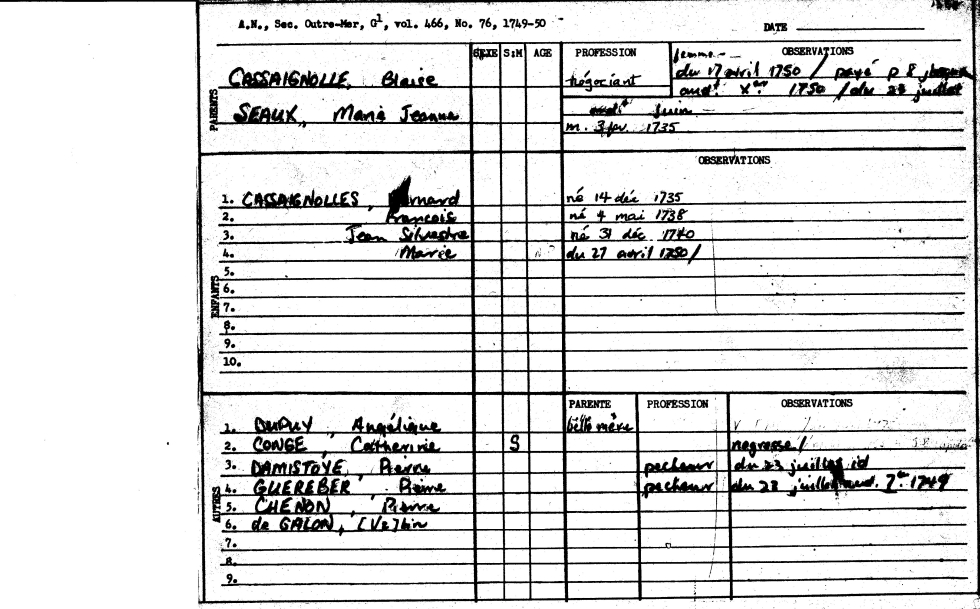 A.N., Sec. Outre-Mer, G1, vol. 466, No. 76, 1749-50
DATE
SEXE S:M AGE PROFESSION OBSERVATIONS
femme
CASSAIGNOLLE, Blaise négociant du 17 avril 1750 / payé p 8
1750 / du 23 juillet
PARENTS
SEAUX, Marie Jeanne juin
m. 3 fev. 1735
OBSERVATIONS
ENFANTS
1. CASSAIGNOLLES, Bernard né 14 déc 1735
2. Francois né 4 mai 1738
3. Jean Silvestre né 31 déc 1740
4. Marie du 27 avril 1750/
5.
6.
7.
8.
9.
10.
PARENTE PROFESSION OBSERVATIONS
AUTRES
1. DUPUY, Angélique belle mère
2. CONGE, Catherine S negresse/
3. DAMISTOYE, Pierre pecheur du 23 juillet id
4. GUEREBER, Pierre pecheur du 23 juillet aud. 7.bre 1749
5. CHENON, Pierre
6. de GALON, [Ve]bin
7.
8.
9.